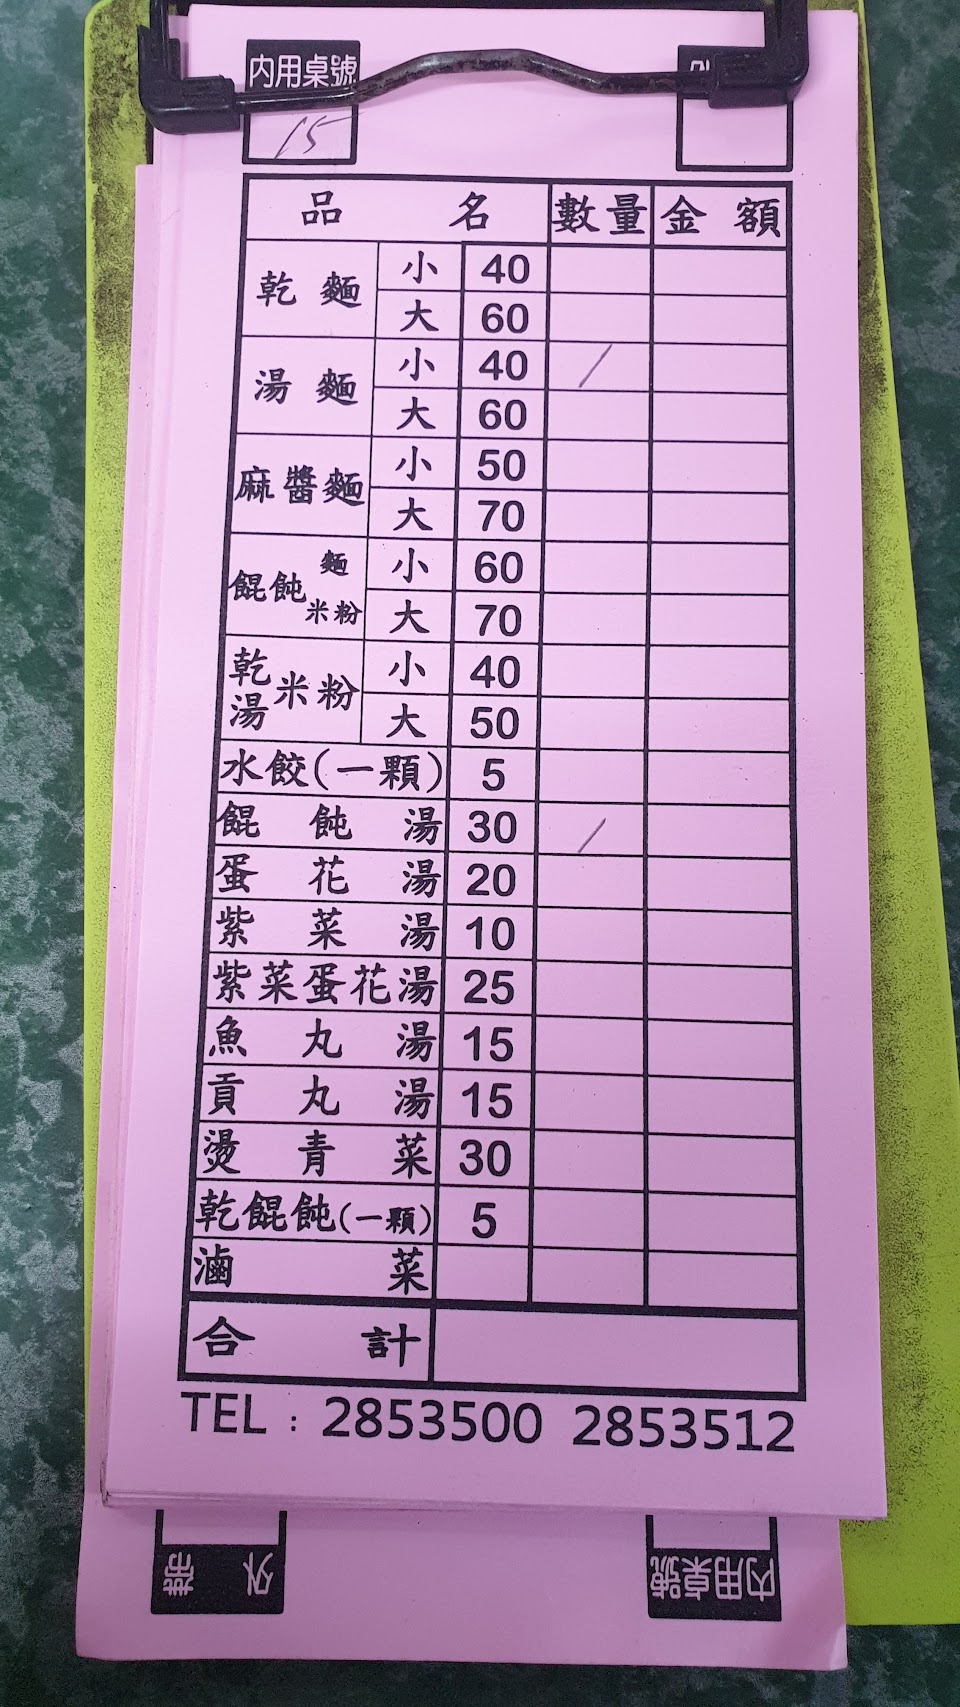 內用桌號
15
品名 數量 金額
乾麵 小 40
大 60
湯麵 小 40 /
大 60
麻醬麵 小 50
大 70
餛飩麵米粉 小 60
大 70
乾湯米粉 小 40
大 50
水餃(一顆) 5
餛飩湯 30 /
蛋花湯 20
紫菜湯 10
紫菜蛋花湯 25
魚丸湯 15
貢丸湯 15
燙青菜 30
乾餛飩(一顆) 5
滷菜
合計
TEL：2853500 2853512
外帶
內用桌號